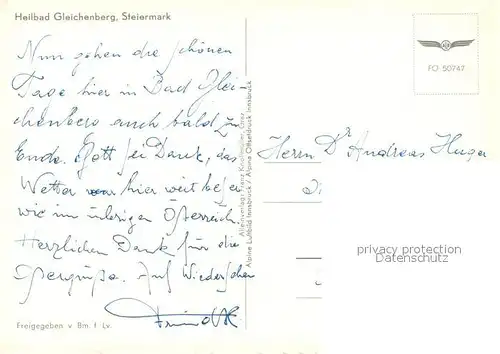 Heilbad Gleichenberg, Steiermark
Nun gehen die schönen
Tage hier in Bad Glei-
chenberg auch bald zu
Ende. Gott sei Dank, das
Wetter war hier weit besser
wie im übrigen Österreich.
Herzlichen Dank für die
Auf Wiedersehen
Freigegeben v. Bm. f. Lv.
Alleinverlag: Franz Knollmüller, Graz
Alpine Luftbild Innsbruck / Alpine Offsetdruck Innsbruck
FO 50747
Herrn Dr Andreas Huger
privacy protection
Datenschutz